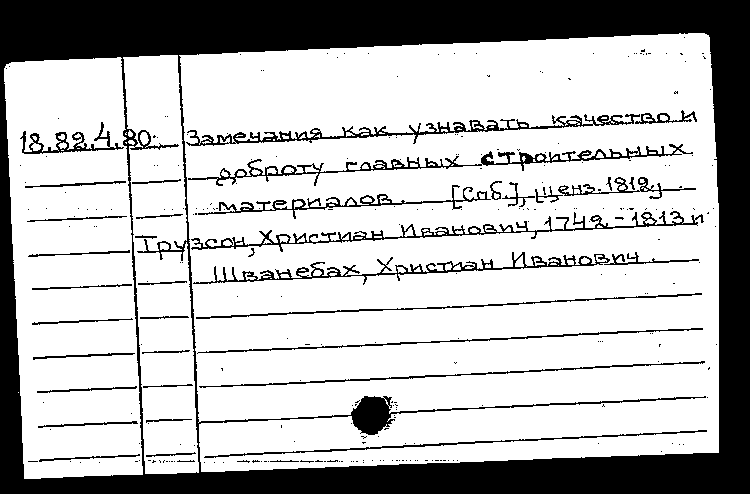 18.82.4.80. Замечания как узнавать качество и
доброту главных строительных
материалов. [Спб.], ценз. 1812.
Трузсон, Христиан Иванович, 1742-1813 и
Шванебах, Христиан Иванович.